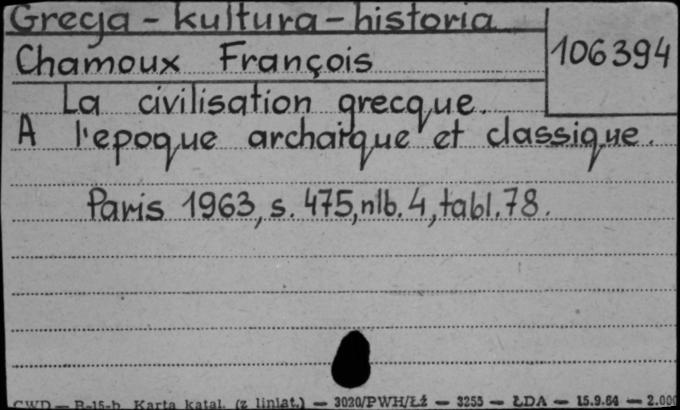 Grecja - kultura - historia
106394
Chamoux François
La civilisation grecque.
A l'epoque archaïque et classique.
Paris 1963, s. 475, nlb. 4, tabl. 78.
CWD — B-15-b Karta katal. (z liniat.) — 3020/PWH/Łź — 3255 — ŁDA — 15.9.64 — 2.000